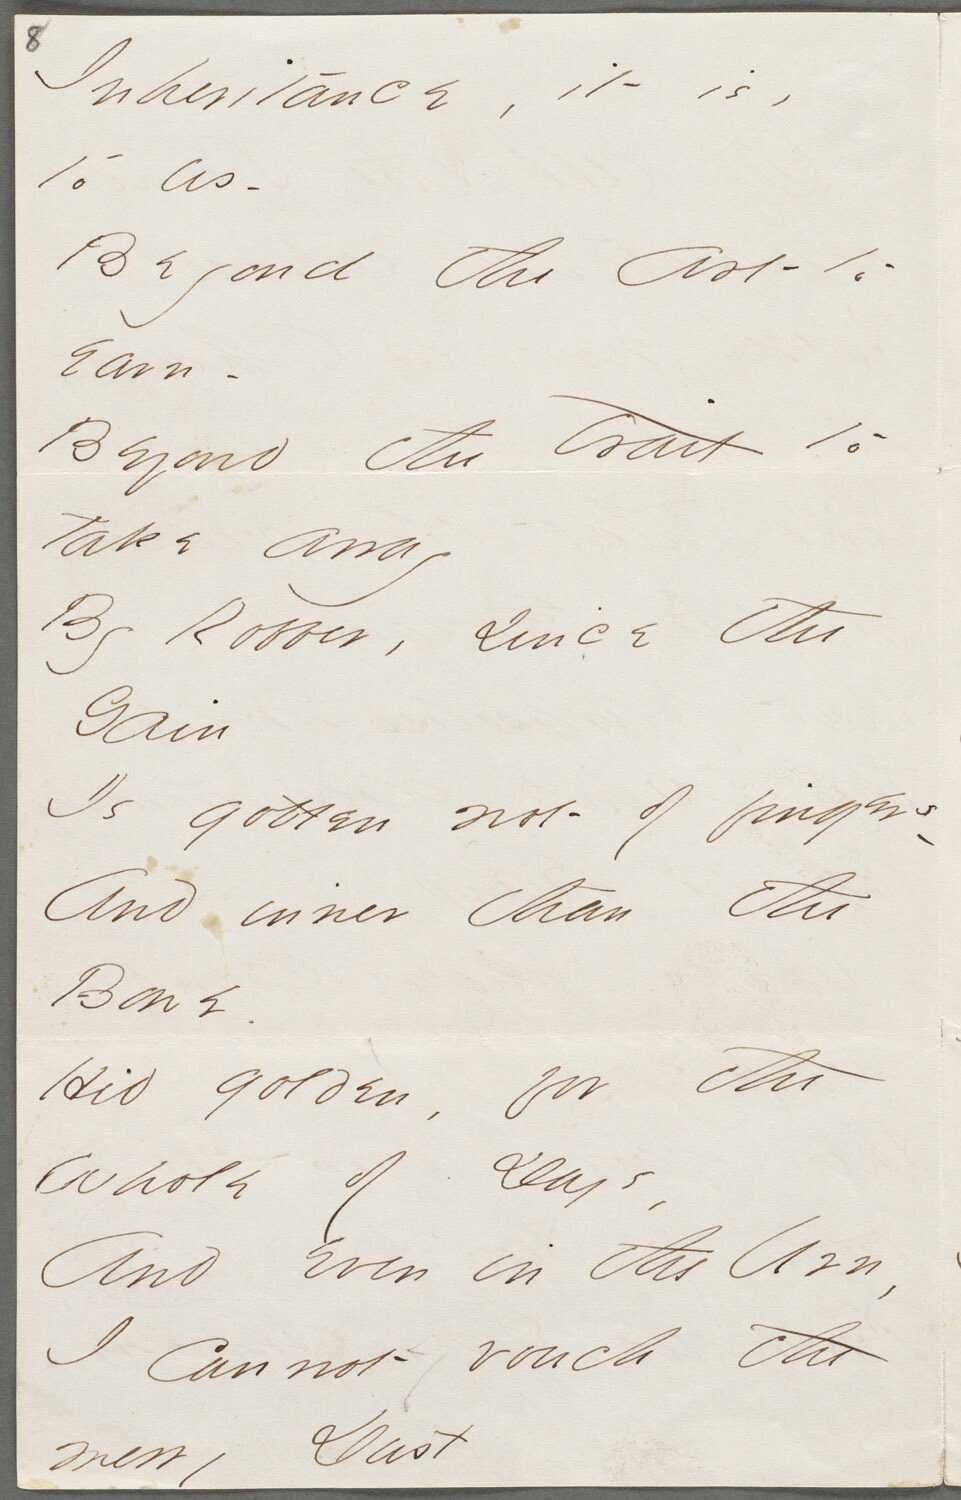 8
Inheritance, it is,
to us -
Beyond the Art to
Earn -
Beyond the trait to
take away
By Robber, since the
Gain
Is gotten not of fingers -
And inner than the
Bone.
Hid golden, for the
Whole of Days,
And even in the Urn,
I cannot vouch the
merry Dust